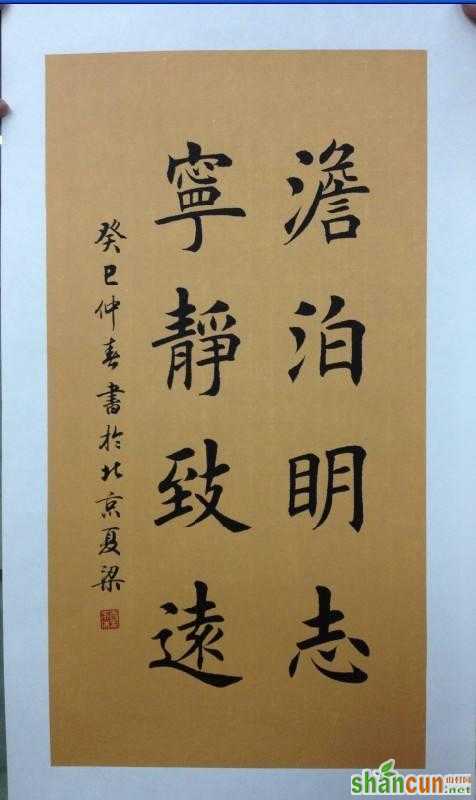 澹泊明志
寧靜致遠
癸巳仲春書於北京夏梁
shancun
山村网
.net